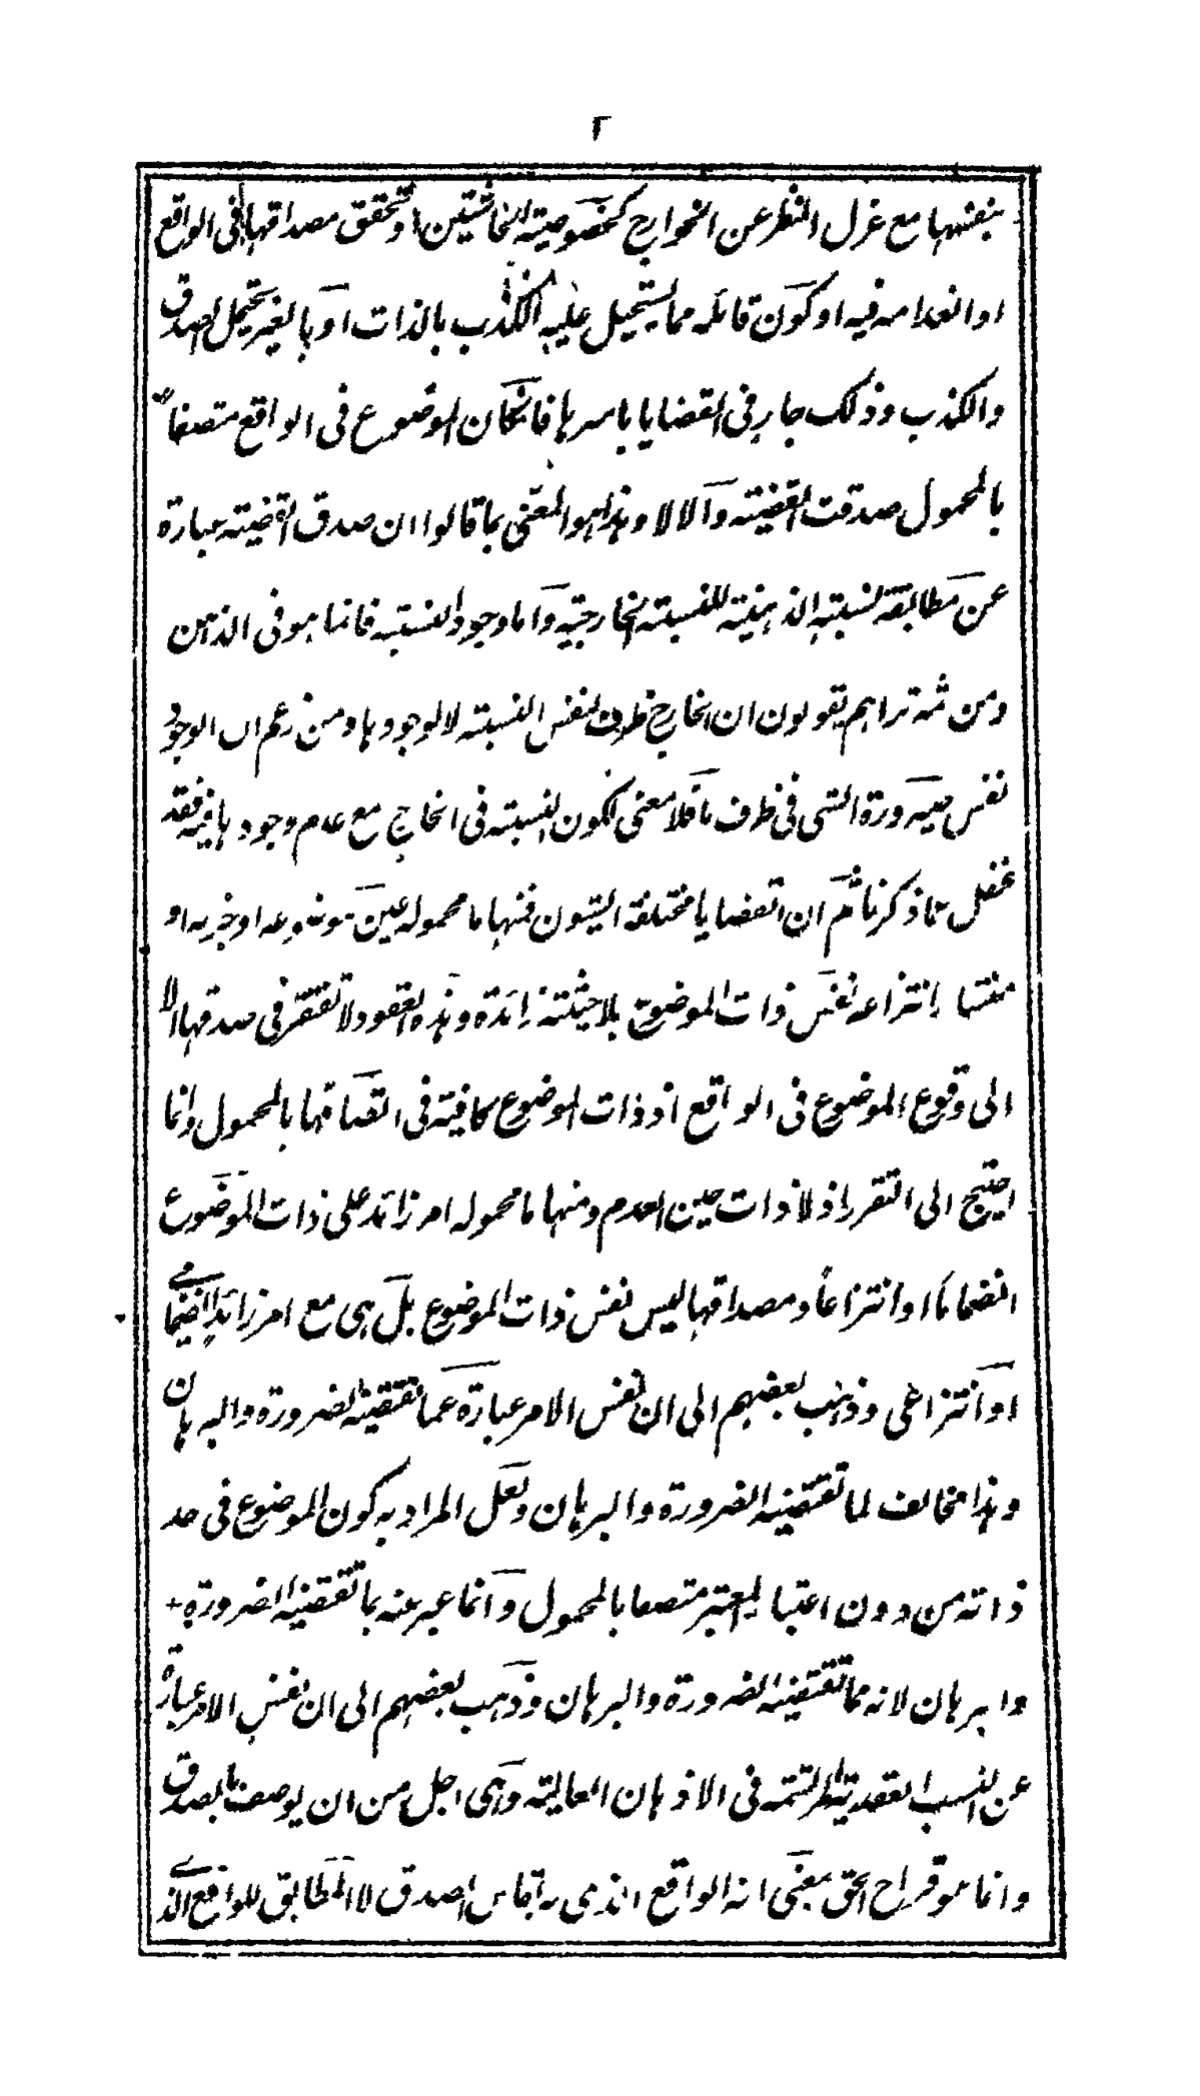 ٢
بنفسها مع عزل النظر عن الخوارج كخصوصية الحاشيتين او تحقق مصداقها في الواقع
او انعدامه فيه او كون قائله مما يستحيل عليه الكذب بالذات او بالغير يحتمل الصدق
والكذب وذلك جار في القضايا باسرها فان كان الموضوع في الواقع متصفاً
بالمحمول صدقت القضية والا لا وهذا هو المعنى بما قالوا ان صدق القضية عبارة
عن مطابقة نسبته الذهنية للنسبة الخارجية واما وجود النسبة فانما هو في الذهن
ومن ثمه تراهم يقولون ان الخارج ظرف لنفس النسبة لا لوجودها ومن زعم ان الوجود
نفس صيرورة الشي في ظرف ما فلا معنى لكون النسبة في الخارج مع عدم وجودها فيه فقد
غفل عما ذكرنا ثم ان القضايا مختلفة الشيون فمنها ما محموله عين موضوعه او جزءه او
منشا انتزاعه نفس ذات الموضوع بلا حيثية زائدة وهذه العقود لا تفتقر في صدقها الا
الى وقوع الموضوع في الواقع اذ ذات الموضوع كافية في اتصافها بالمحمول وانما
احتيج الى التقرر اذ لا ذات حين العدم ومنها ما محموله امر زائد على ذات الموضوع
انضماما او انتزاعاً ومصداقها ليس نفس ذات الموضوع بل هي مع امر زائد انضمامي
او انتزاعي وذهب بعضهم الى ان نفس الامر عبارة عما تقتضيه الضرورة والبرهان
وهذا مخالف لما تقتضيه الضرورة والبرهان ولعل المراد به كون الموضوع في حد
ذاته من دون اعتبار المعتبر متصفا بالمحمول وانما عبر عنه بما تقتضيه الضرورة
والبرهان لانه مما تقتضيه الضرورة والبرهان وذهب بعضهم الى ان نفس الامر عبارة
عن النسب العقدية المرتسمة في الاذهان العالية وهي اجل من ان يوصف بالصدق
وانما هو قراح الحق بمعنى انه الواقع الذي به تقاس الصدق لا المطابق للواقع الذي